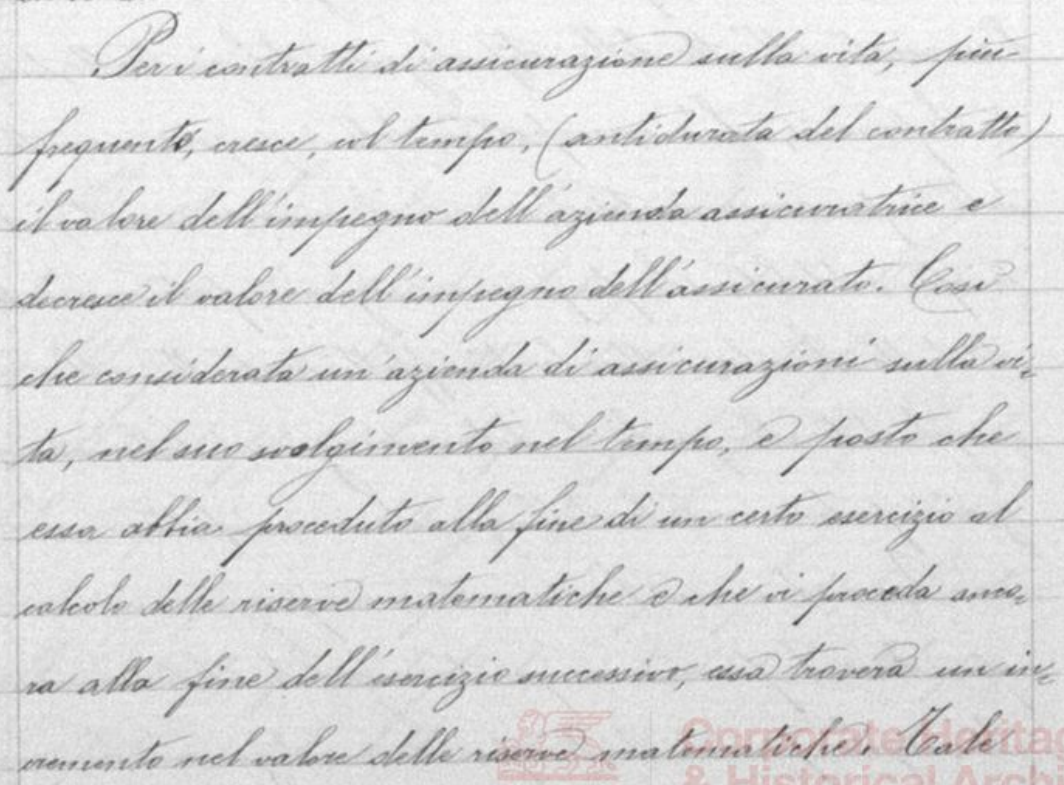 Per i contratti di assicurazione sulla vita, più
frequenti, cresce, col tempo, (antidurata del contratto)
il valore dell'impegno dell'azienda assicuratrice e
decresce il valore dell'impegno dell'assicurato. Così
che considerata un'azienda di assicurazioni sulla vi=
ta, nel suo svolgimento nel tempo, e posto che
essa abbia proceduto alla fine di un certo esercizio al
calcolo delle riserve matematiche e che vi proceda anco=
ra alla fine dell'esercizio successivo, essa troverà un in=
cremento nel valore delle riserve matematiche. Tale
Corporate Heritag
& Historical Archi